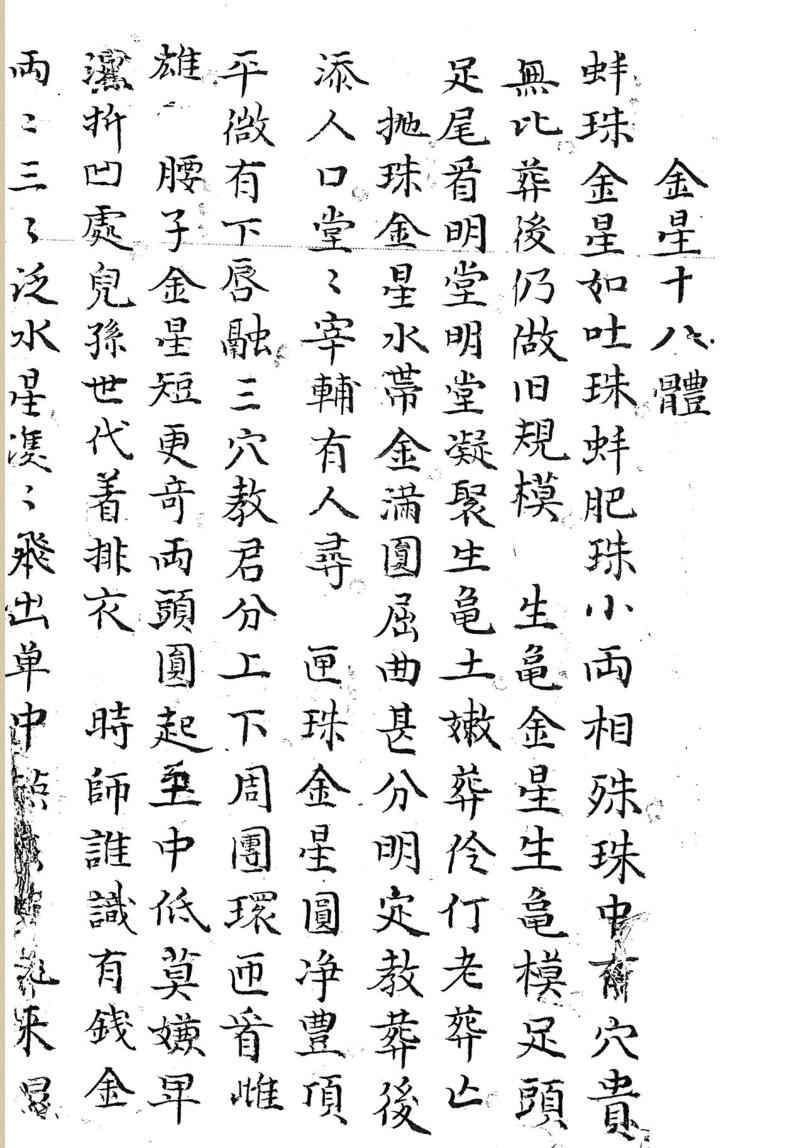 金星十八體
蚌珠金星如吐珠蚌肥珠小両相殊珠中有穴貴
無比葬後仍做旧規模　生亀金星生亀模足頭
足尾看明堂明堂凝聚生亀土嫩葬伶仃老葬亡
抛珠金星水帶金滿圓屈曲甚分明定教葬後
添人口堂〻宰輔有人尋　匣珠金星圓净豊頂
平微有下唇融三穴教君分上下周團環匝看雌
雄　腰子金星短更奇両頭圓起至中低莫嫌早
折凹處兒孫世代着排衣　時師誰識有錢金
両〻三〻泛水星　〻飛出单中　来